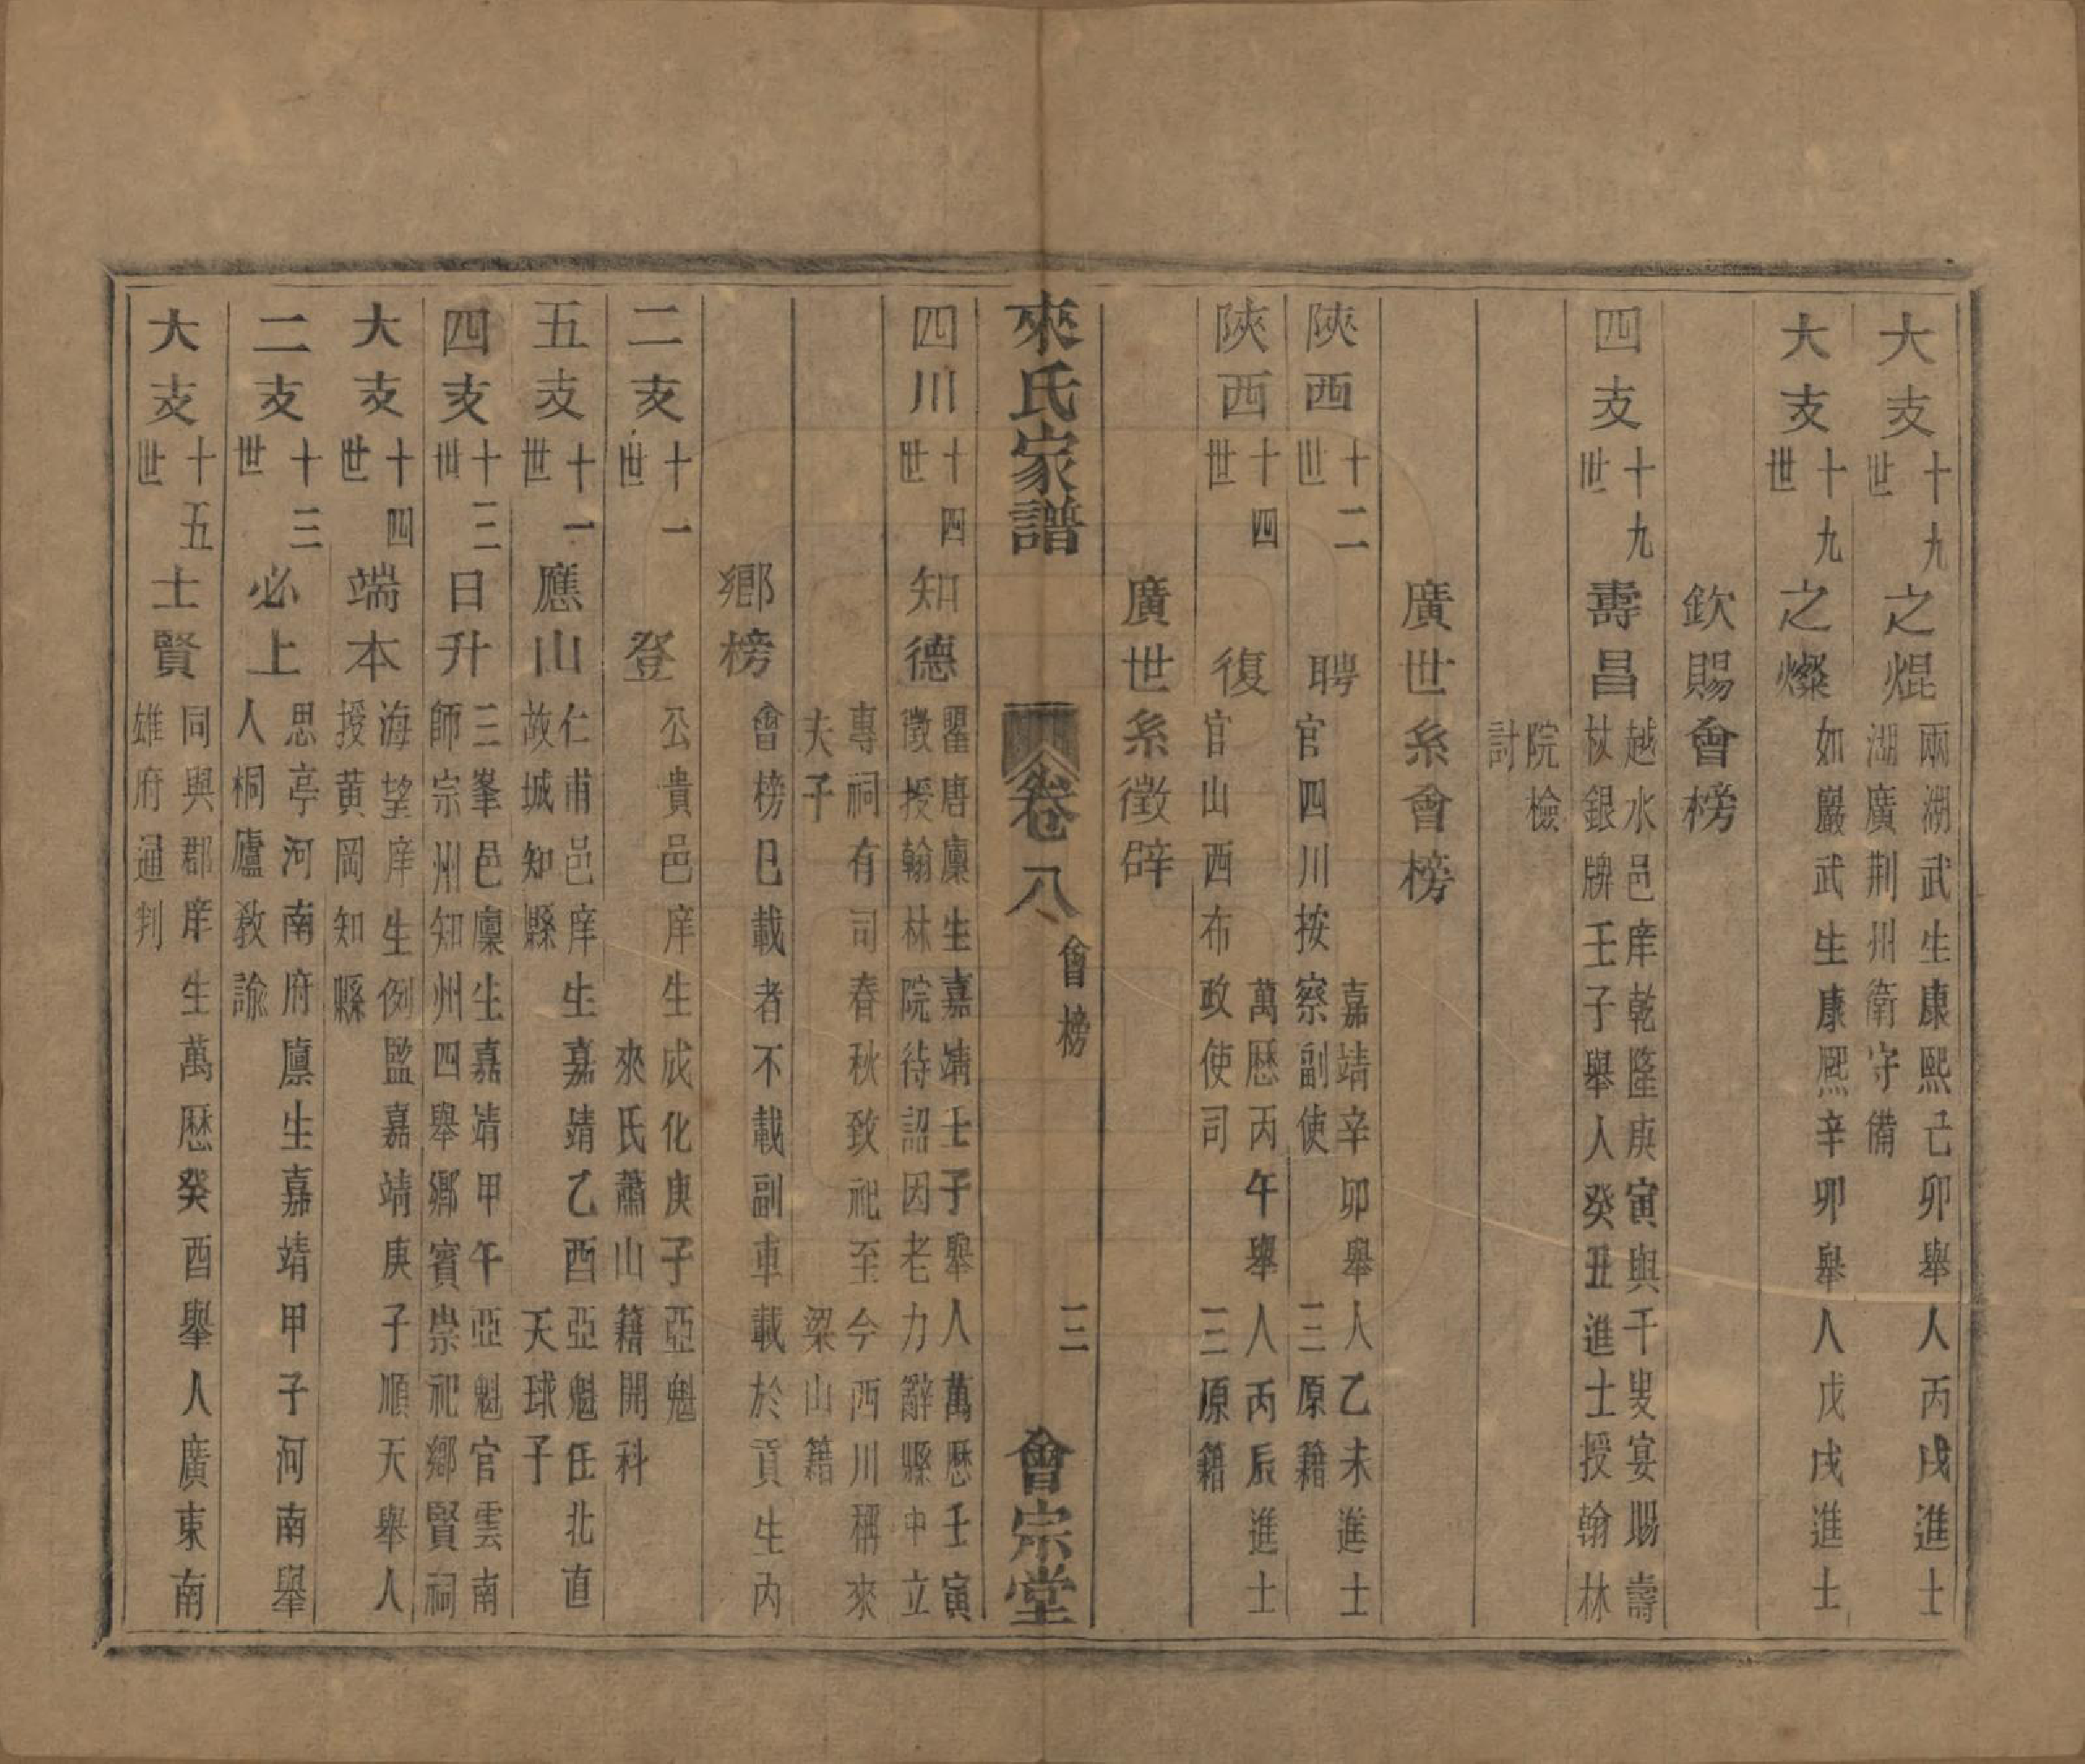 大支十九世之焜兩湖武生康熙己卯舉人丙戌進士
湖廣荆州衛守備
大支十九世之燦如巖武生康熙辛卯舉人戊戌進士
欽賜會榜
四支十九世壽昌越水邑庠乾隆庚寅與千叟宴賜壽
杖銀牌壬子舉人癸丑進士授翰林
院檢
討
廣世系會榜
陝西十二世聘嘉靖辛卯舉人乙未進士
官四川按察副使三原籍
陝西十四世復萬歷丙午舉人丙辰進士
官山西布政使司三原籍
廣世系徵辟
來氏家譜 卷八 會榜 三 會宗堂
四川十四世知德瞿唐廩生嘉靖壬子舉人萬歷壬寅
徵授翰林院待詔因老力辭縣中立
專祠有司春秋致祀至今西川稱來
夫子 梁山籍
鄉榜會榜已載者不載副車載於貢生內
二支十一世登公貴邑庠生成化庚子亞魁
來氏蕭山籍開科
五支十一世應山仁甫邑庠生嘉靖乙酉亞魁任北直
故城知縣 天球子
四支十三世日升三峯邑廩生嘉靖甲午亞魁官雲南
師宗州知州四舉鄉賓崇祀鄉賢祠
大支十四世端本海望庠生例監嘉靖庚子順天舉人
授黃岡知縣
二支十三世必上思亭河南府廩生嘉靖甲子河南舉
人桐廬教諭
大支十五世士賢同與郡庠生萬歷癸酉舉人廣東南
雄府通判